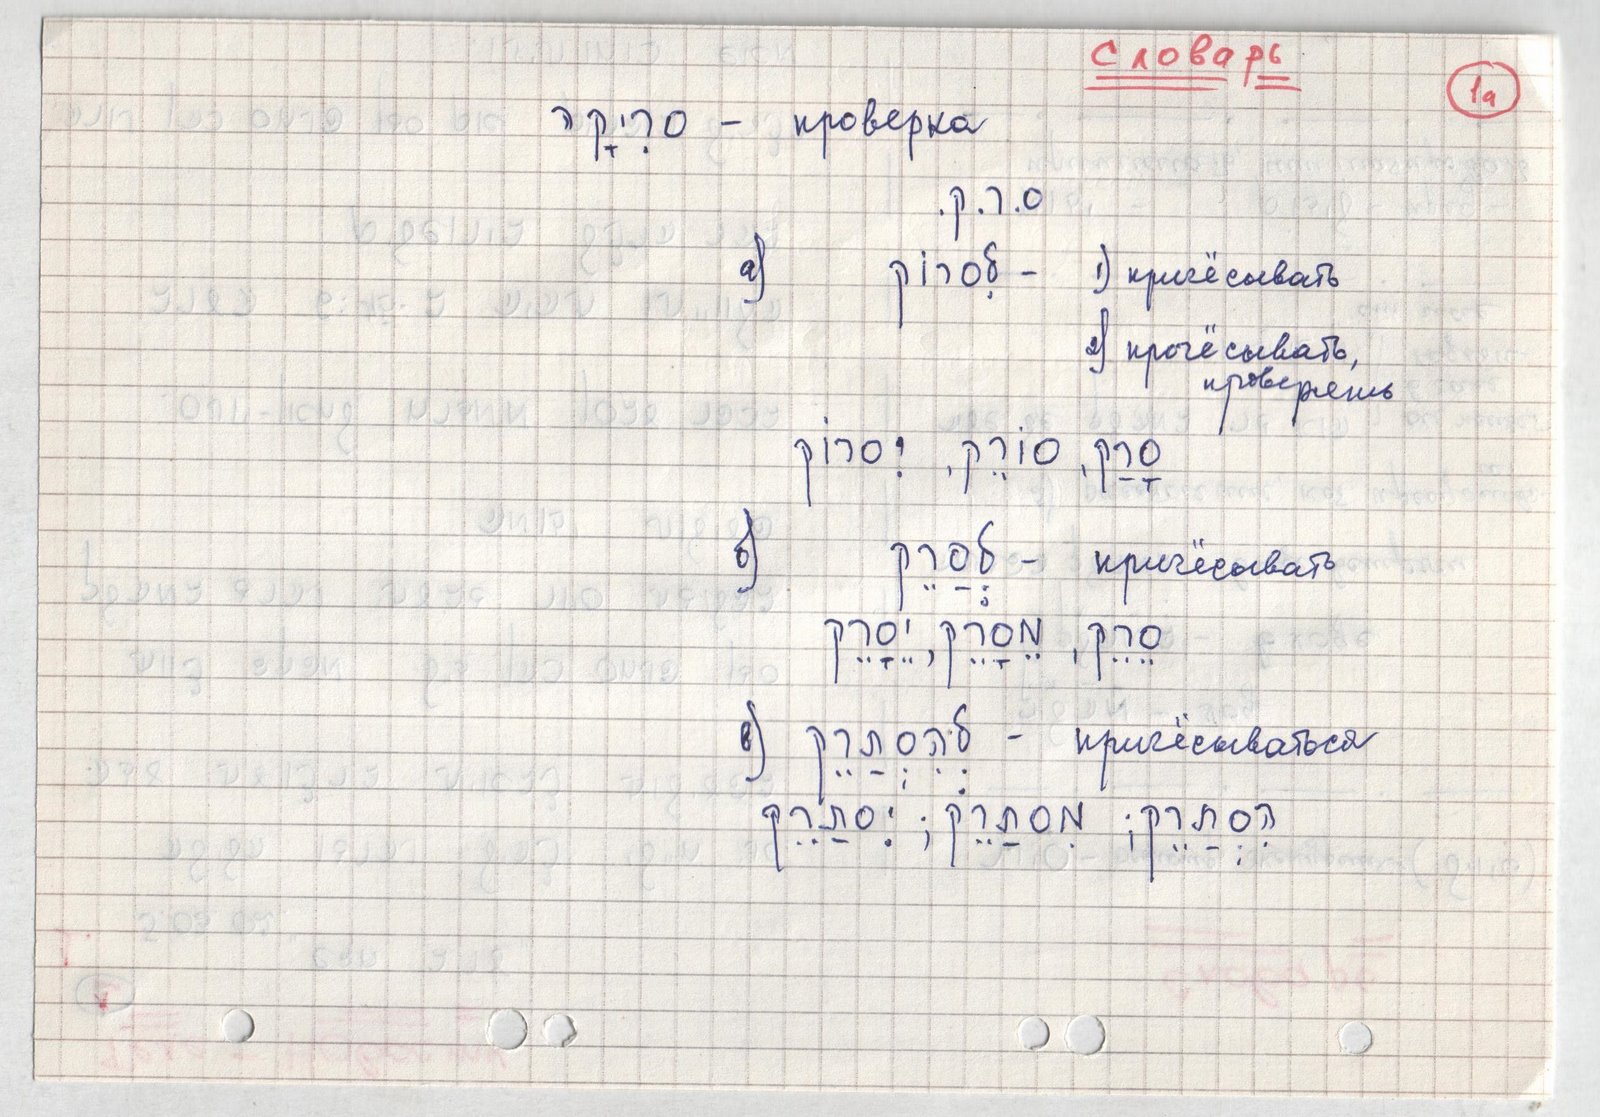 Словарь
1а
סרִיקָה – проверка
ס.ר.ק.
а) לִסרוֹק – 1) причёсывать
2) прочёсывать,
проверять
סָרַק, סוֹרֵק, יִסרוֹק
б) לְסַרֵק – причёсывать
סֵרֵק, מֵסָרֵק, יֵסָרֵק
в) לְהִסְתַרֵק – причёсываться
הִסְתַרֵק; מִסתַרֵק; יִסתַרֵק